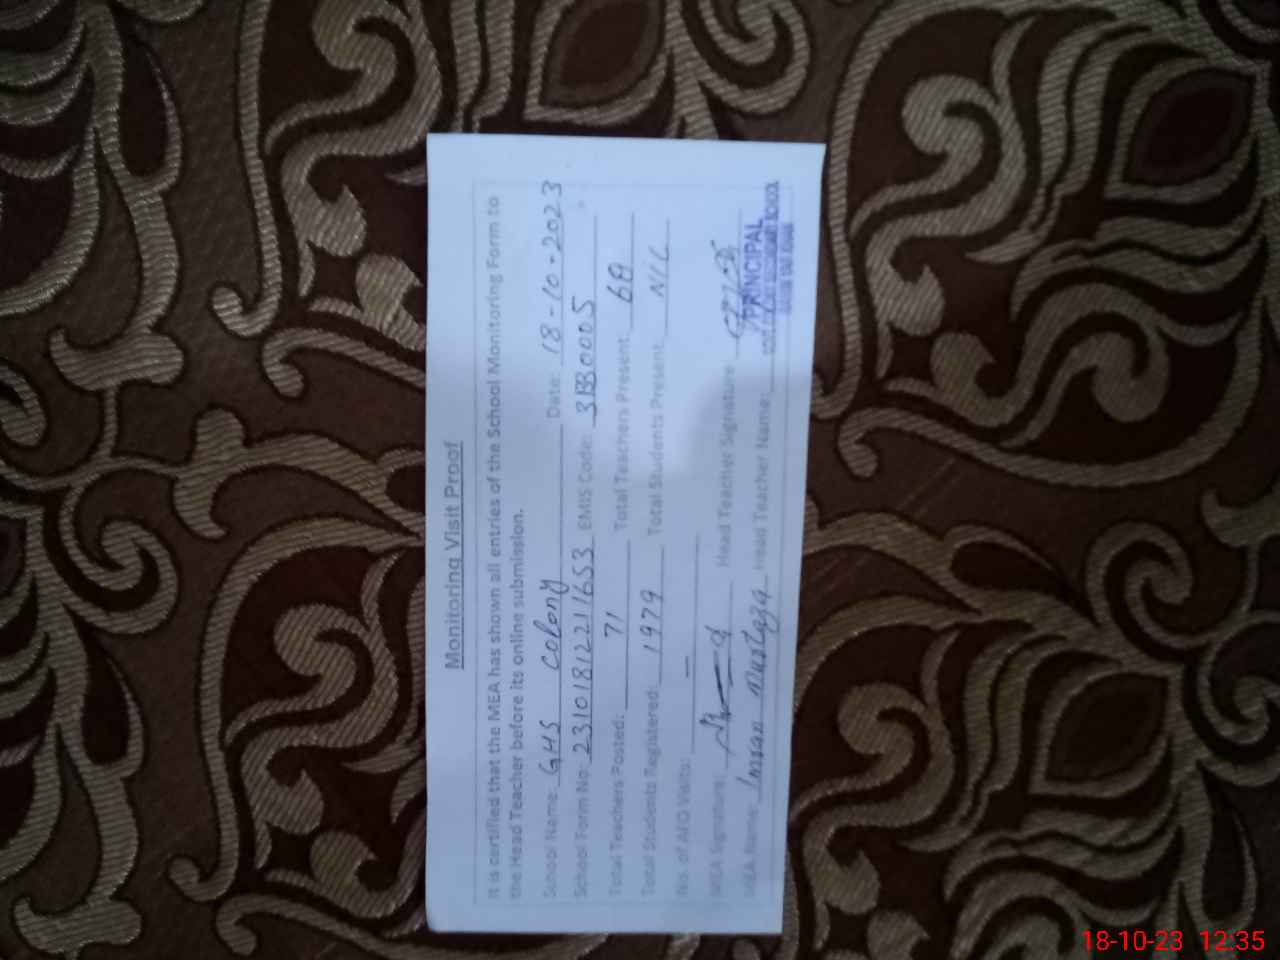 Monitoring Visit Proof
It is certified that the MEA has shown all entries of the School Monitoring Form to
the Head Teacher before its online submission.
School Name: GHS colony Date: 18-10-2023
School Form No: 231018122211653 EMIS Code:
Total Teachers Posted: 71 Total Teachers Present
Total Students Registered: 1979 Total Students Present
No. of AFO Visits: —
MEA Signature: Head Teacher Signature
MEA Name: Mustaza Head Teacher Name:
PRINCIPAL
18-10-23 12:35